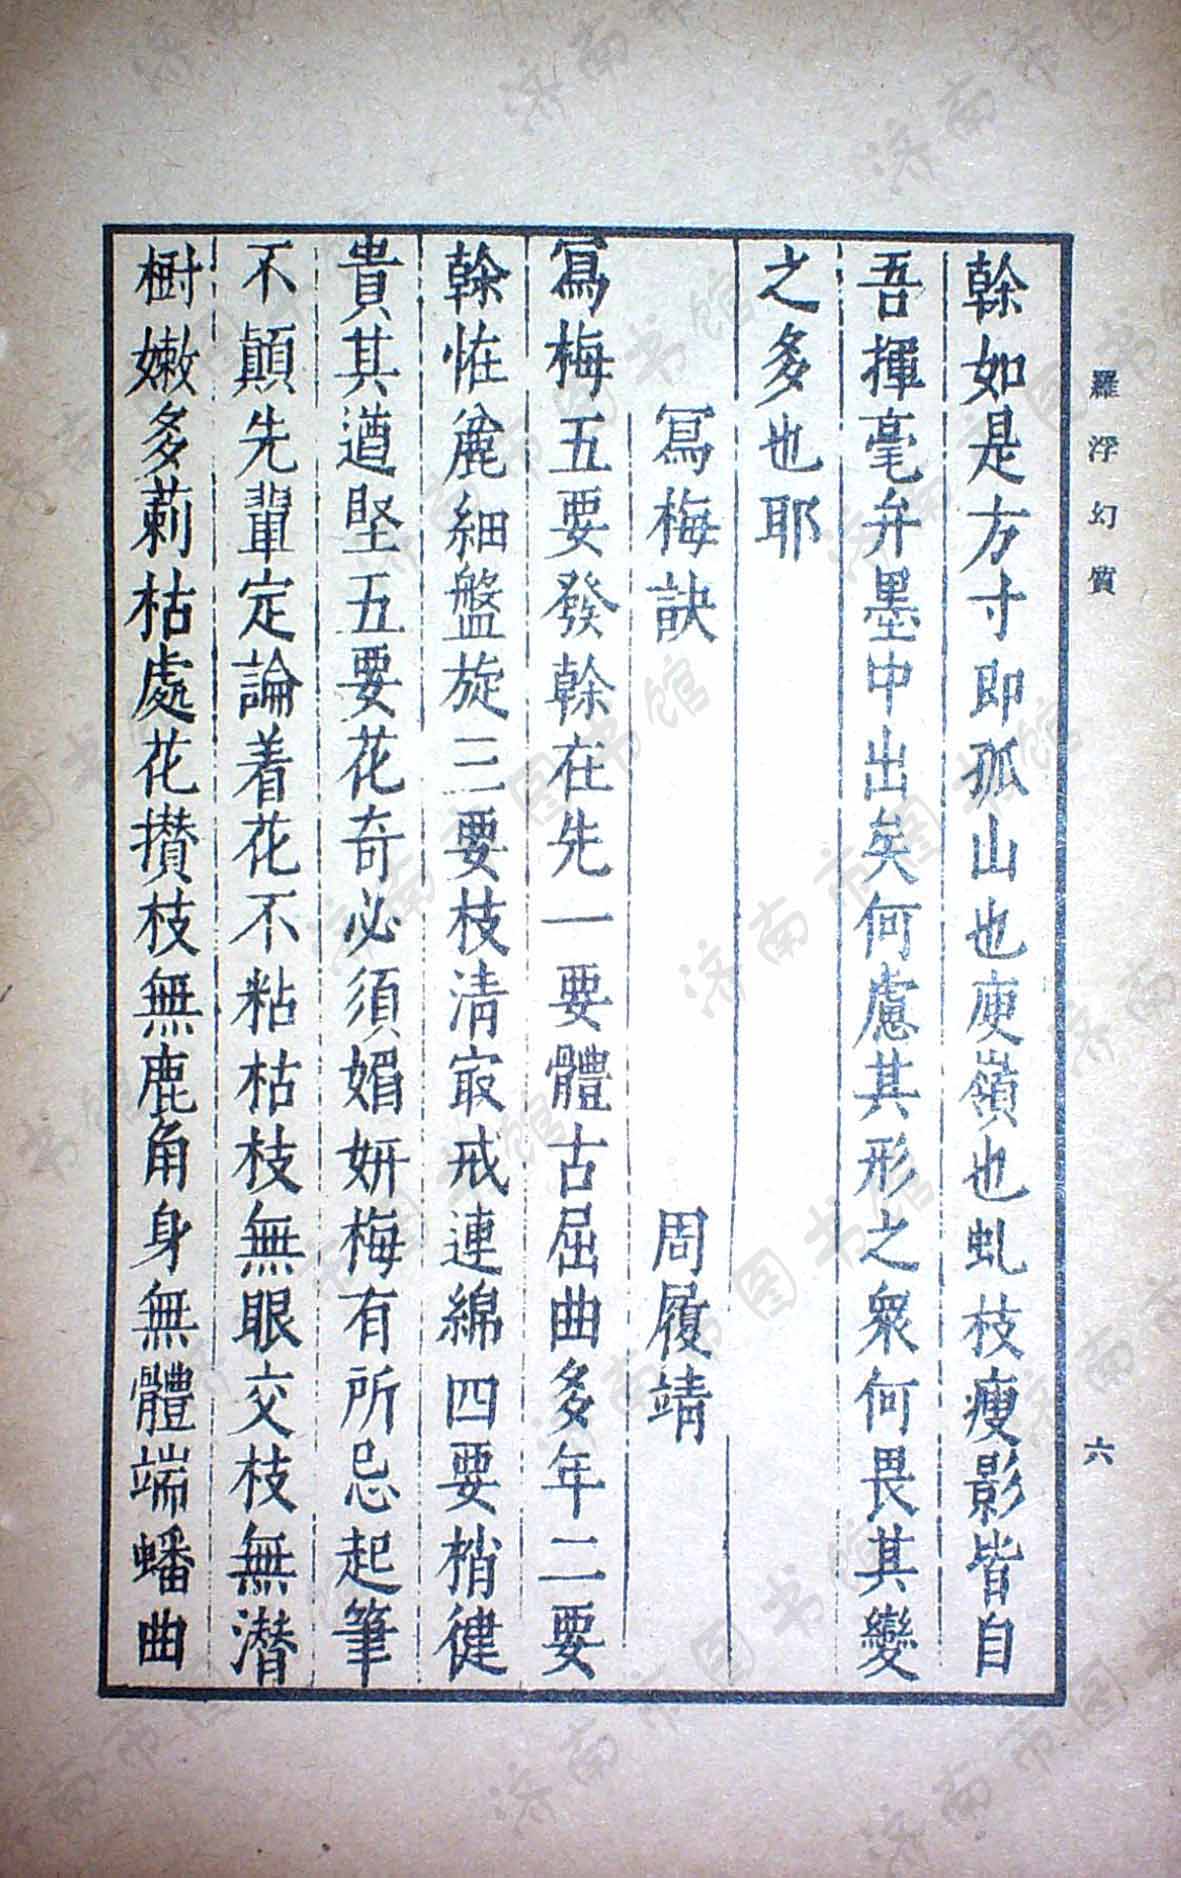 羅浮幻質
六
榦如是方寸即孤山也庾嶺也虬枝瘦影皆自
吾揮毫弁墨中出矣何慮其形之衆何畏其變
之多也耶
冩梅訣 周履靖
冩梅五要發榦在先一要體古屈曲多年二要
榦恠麄細盤旋三要枝清㝡戒連綿四要梢健
貴其遒堅五要花奇必須媚妍梅有所忌起筆
不顛先輩定論着花不粘枯枝無眼交枝無潜
樹嫩多刺枯處花攢枝無鹿角身無體端蟠曲
济南市图书馆